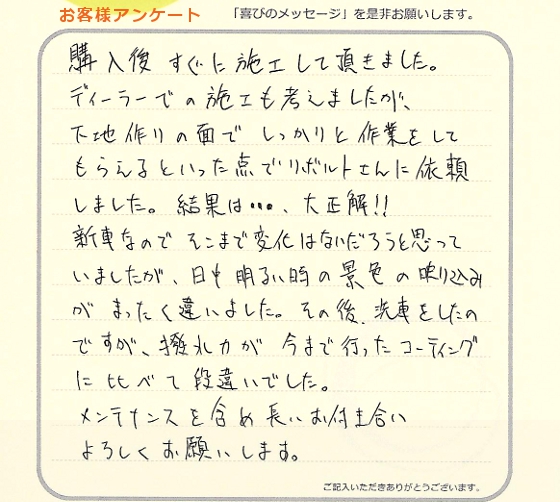 お客様アンケート 「喜びのメッセージ」を是非お願いします。
購入後 すぐに施工して頂きました。
ディーラーでの施工も考えましたが、
下地作りの面で しっかりと作業をして
もらえるといった点でリボルトさんに依頼
しました。結果は…、大正解!!
新車なので そこまで変化はないだろうと思って
いましたが、日中明るい時の景色の映り込み
が まったく違いました。その後、洗車をしたの
ですが、撥水力が 今まで行ったコーティング
に比べて段違いでした。
メンテナンスを含め長いお付き合い
よろしくお願いします。
ご記入いただきありがとうございます。